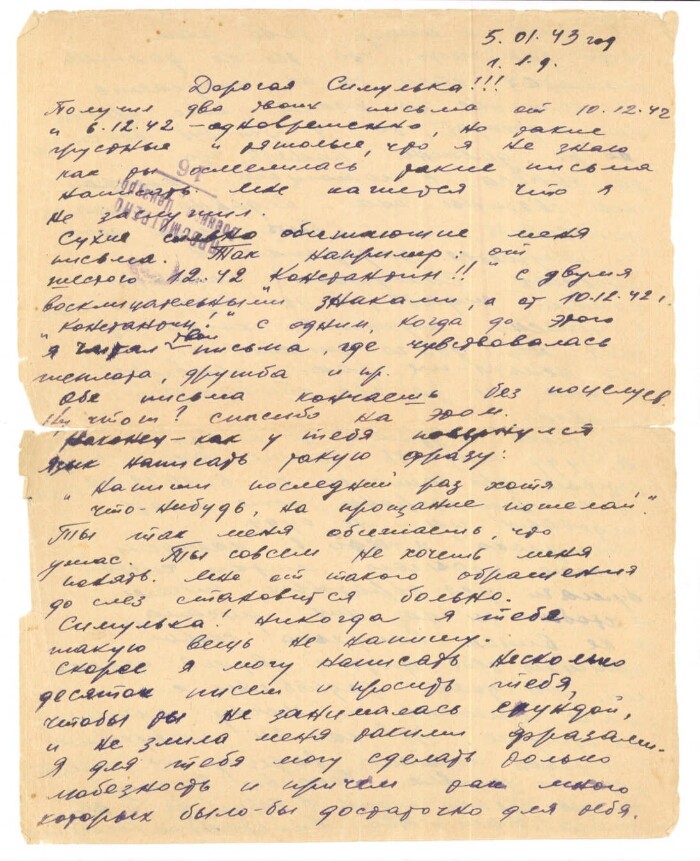 5.01.43 год
Дорогая Симулька!!!
Получил два твоих письма от 10.12.42
и 6.12.42 – одновременно, но такие
грустные и , что я не знаю
как ты осмелилась такие письма
написать. Мне кажется что я
не заслужил.
Сухие обижающие меня
письма. Так например: от
шестого 12.42 "Константин!!" с двумя
восклицательными знаками, а от 10.12.42 г.
"Константин!" с одним, когда до этого
я читал твои письма, где чувствовалась
теплота, дружба и пр.
Обе письма кончаешь без поцелуев.
Ну что ж? спасибо на этом.
– как у тебя повернулся
язык написать такую фразу:
"Напиши последний раз хотя
что-нибудь, на прощание пожелай".
Ты так меня обижаешь, что
ужас. Ты совсем не хочешь меня
понять. Мне от такого обращения
до слез становится больно.
Симулька! Никогда я тебе
такую вещь не напишу.
Скорее я могу написать несколько
десяток писем и просить тебя,
чтобы ты не занималась ерундой,
и не злила меня такими фразами.
Я для тебя могу сделать только
любезность и причем так много
которых было-бы достаточно для тебя.
ПРОСМОТРЕНО
Военной Цензурой